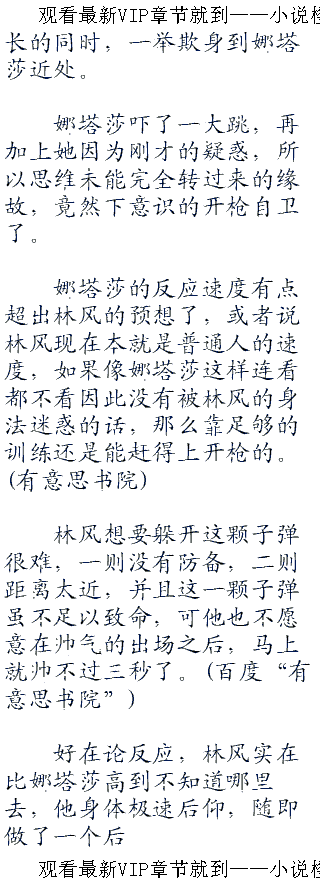 观看最新VIP章节就到——小说
长的同时，一举欺身到娜塔
莎近处。
娜塔莎吓了一大跳，再
加上她因为刚才的疑惑，所
以思维未能完全转过来的缘
故，竟然下意识的开枪自卫
了。
娜塔莎的反应速度有点
超出林风的预想了，或者说
林风现在本就是普通人的速
度，如果像娜塔莎这样连看
都不看因此没有被林风的身
法迷惑的话，那么靠足够的
训练还是能赶得上开枪的。
(有意思书院)
林风想要躲开这颗子弹
很难，一则没有防备，二则
距离太近，并且这一颗子弹
虽不足以致命，可他也不愿
意在帅气的出场之后，马上
就帅不过三秒了。(百度“有
意思书院”)
好在论反应，林风实在
比娜塔莎高到不知道哪里
去，他身体极速后仰，随即
做了一个后
观看最新VIP章节就到——小说